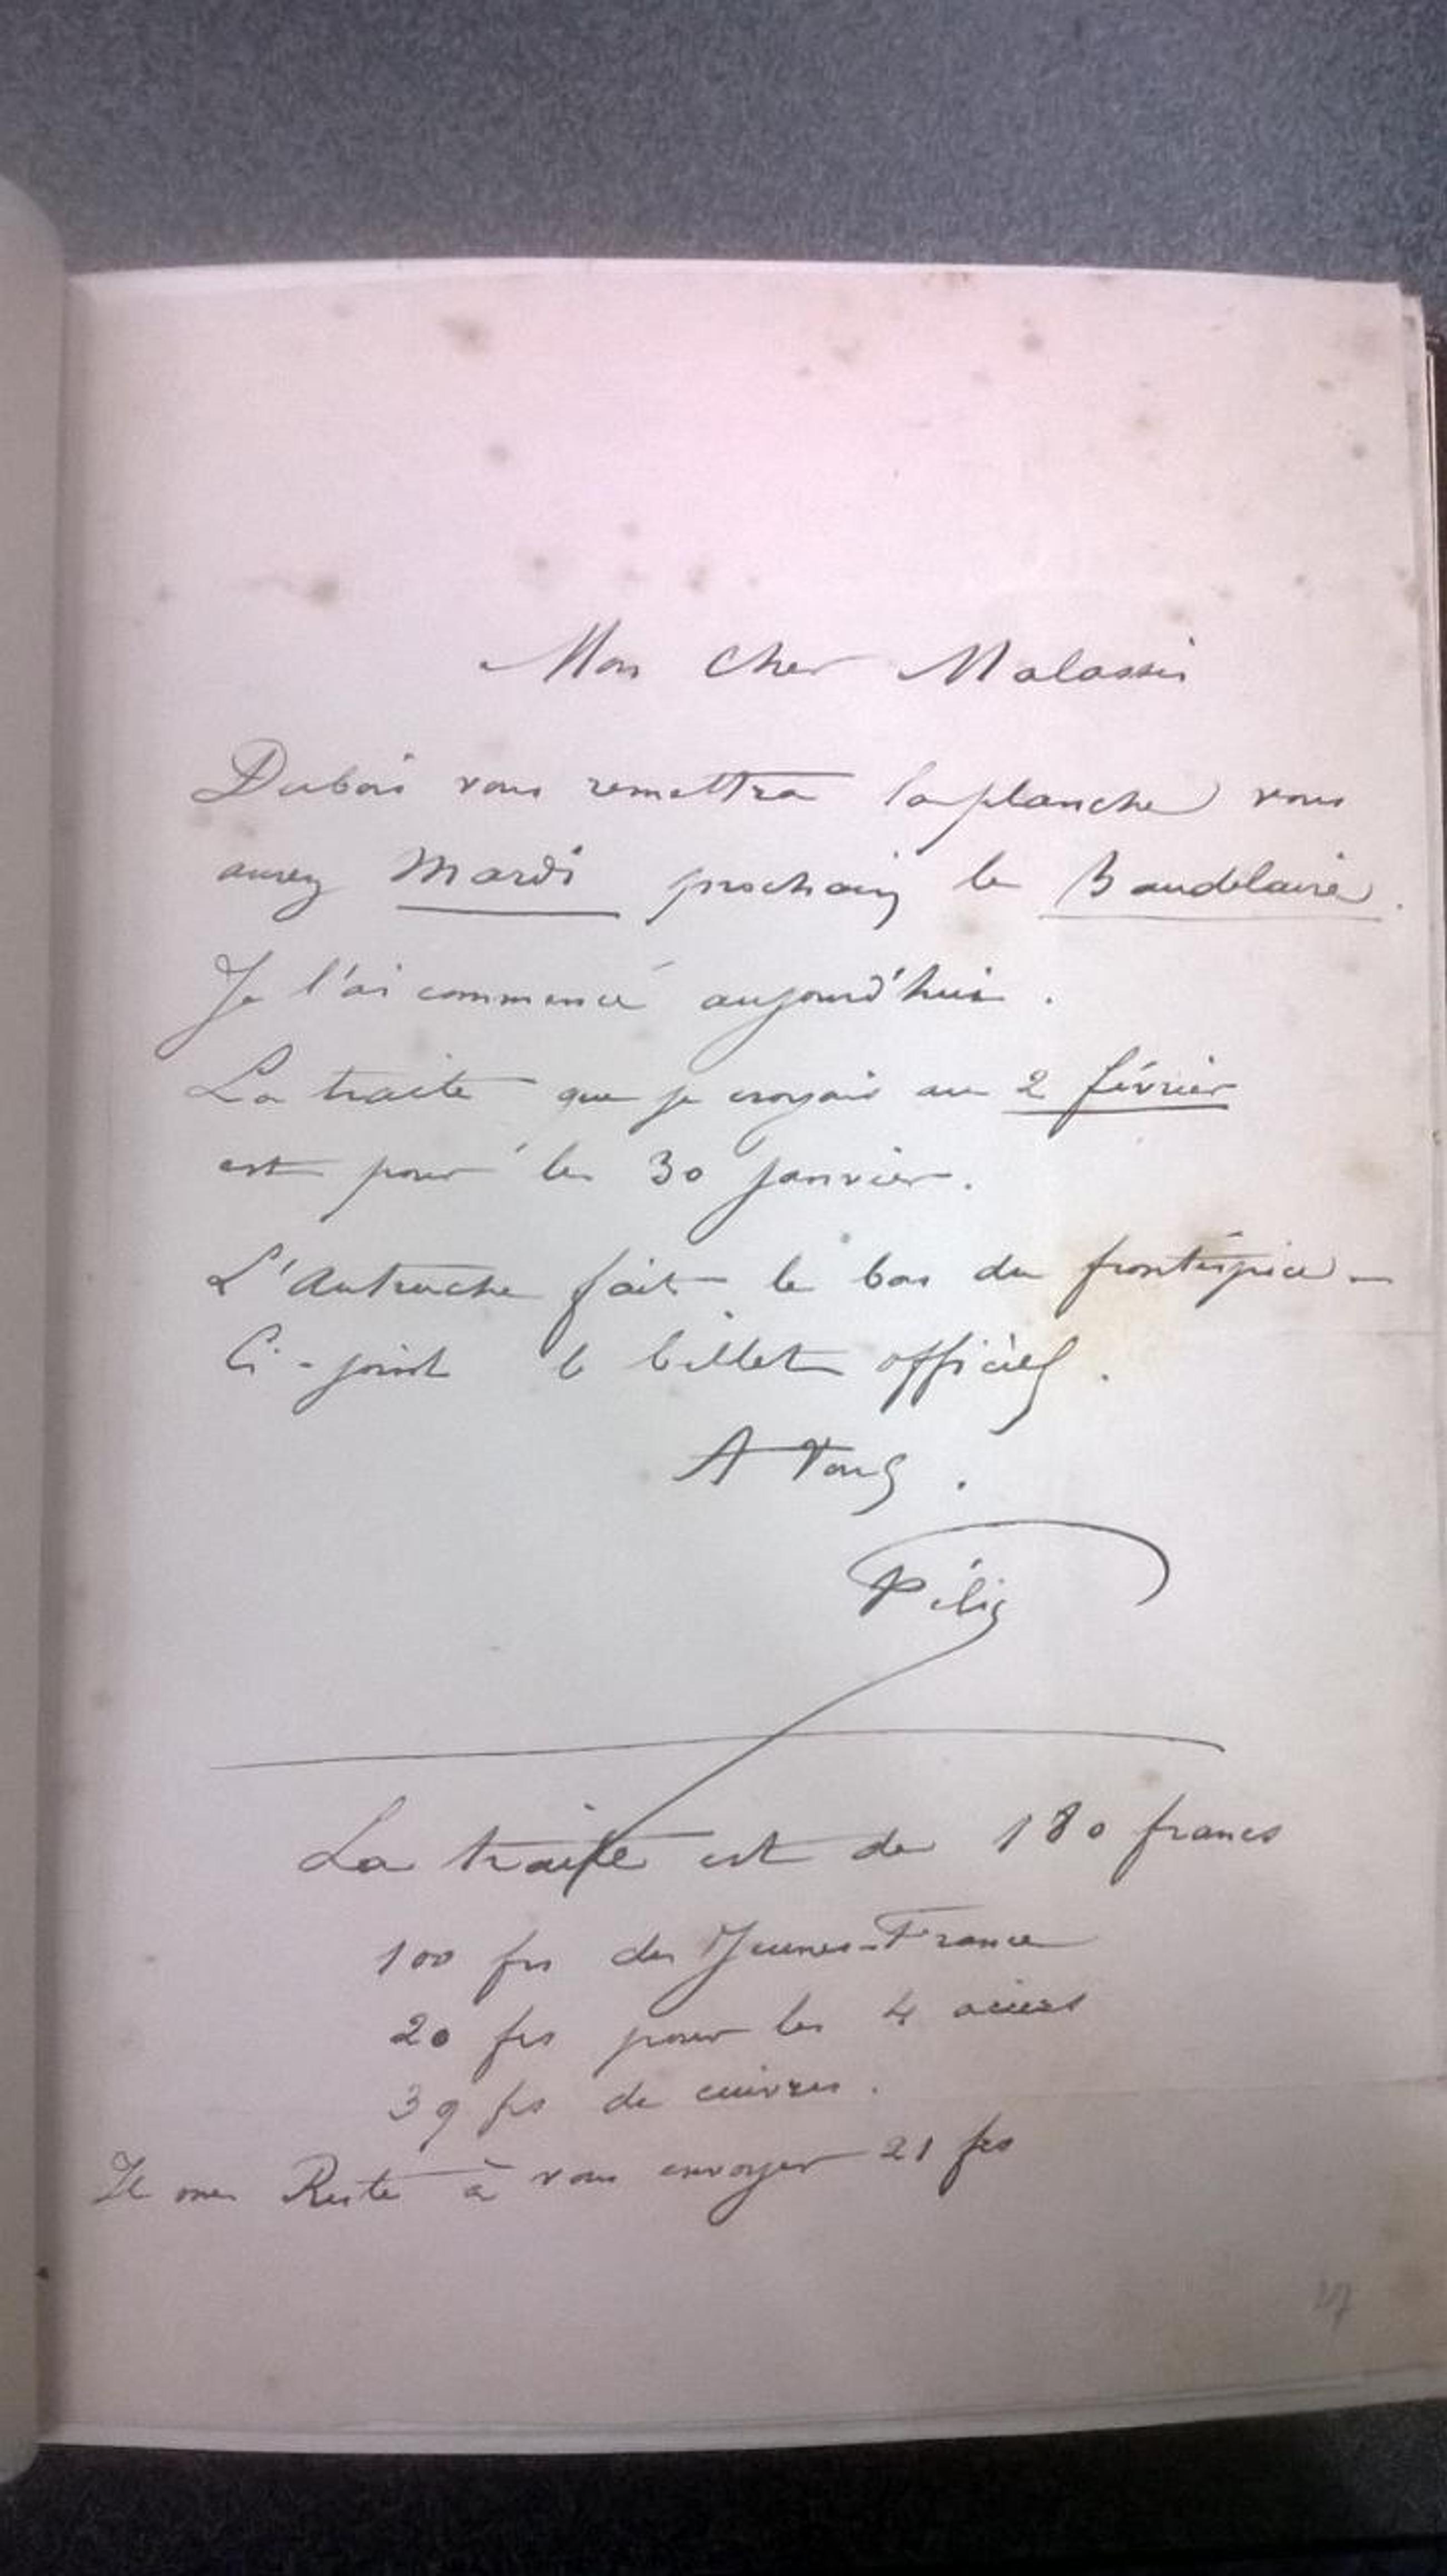 Mon cher Malassis
Dubois vous remettra la planche vous
aurez Mardi prochain le Baudelaire.
Je l'ai commencé aujourd'hui.
La traite que je croyais au 2 février
est pour le 30 janvier.
L'Autruche fait le bas du frontispice –
Ci-joint le billet officiel.
A Vous.
Féliç
La traite est de 180 francs
100 frs des Jeunes-France
20 frs pour les 4 aciers
39 frs de cuivres.
Il me Reste à vous envoyer 21 frs